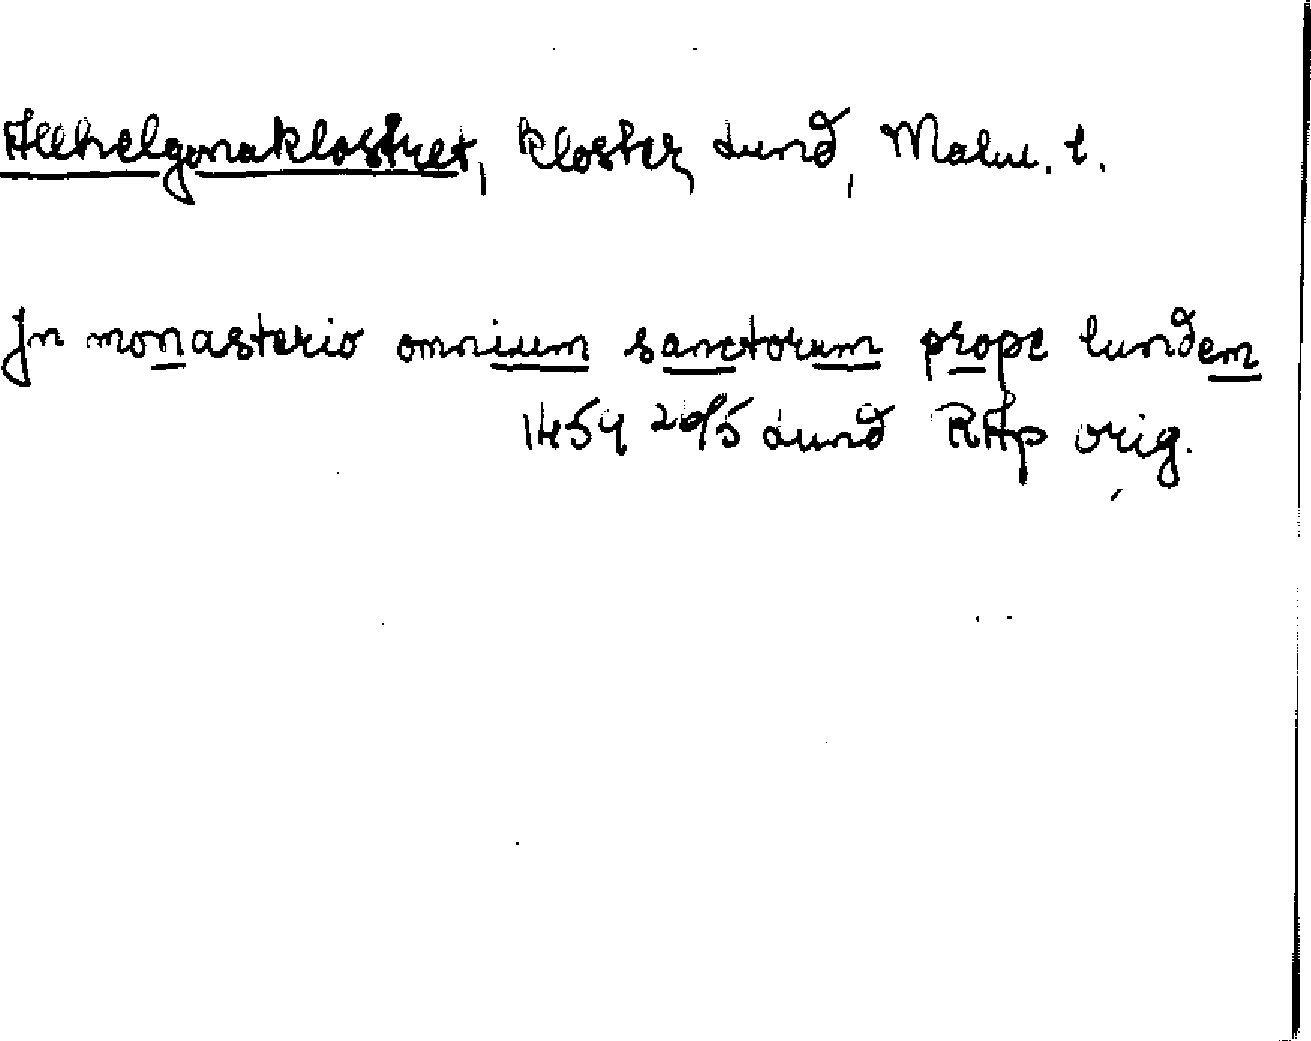 Allhelgonaklostret, kloster, Lund, Malm. l.
Jn monasterio omnium sanctorum prope lundem
1459 20/5 Lund RAp orig.